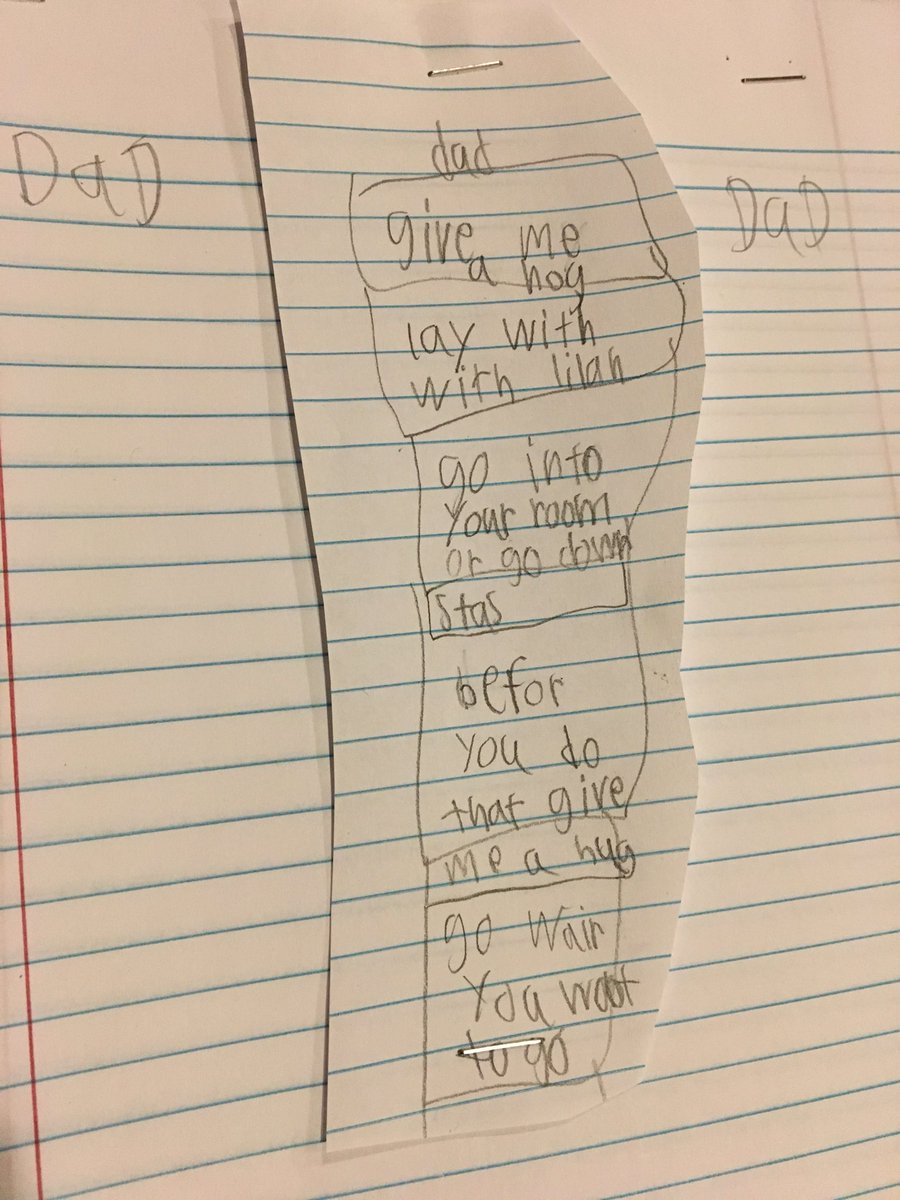 DaD
dad
DaD
give me
a hog
lay with
with lilah
go into
your room
or go down
stas
befor
you do
that give
me a hug
go wair
you wat
to go